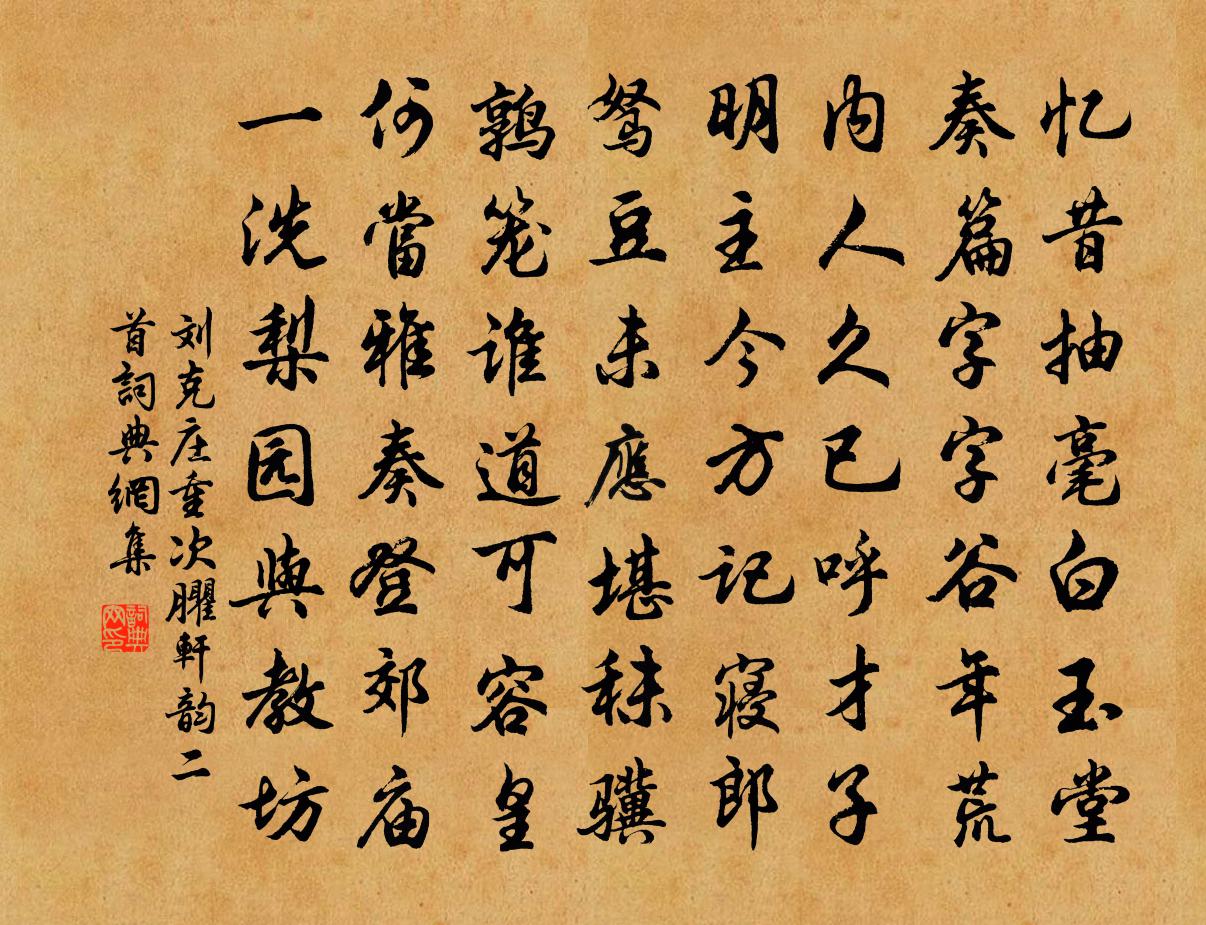 忆昔抽毫白玉堂
奏篇字字谷年荒
内人久已呼才子
明主今方记寝郎
驽豆未应堪秣骥
鹑笼谁道可容皇
何當雅奏登郊庙
一洗梨园與教坊
刘克庄重次臞軒韵二
首詞典網集
詞典网印